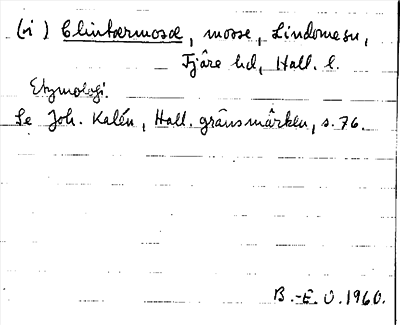 (i) Clintœrmosœ, mosse, Lindome sn,
Fjäre hd, Hall. l.
Etymologi.
Se Joh. Kalén, Hall. gränsmärken, s. 76.
B.-E. O. 1960.